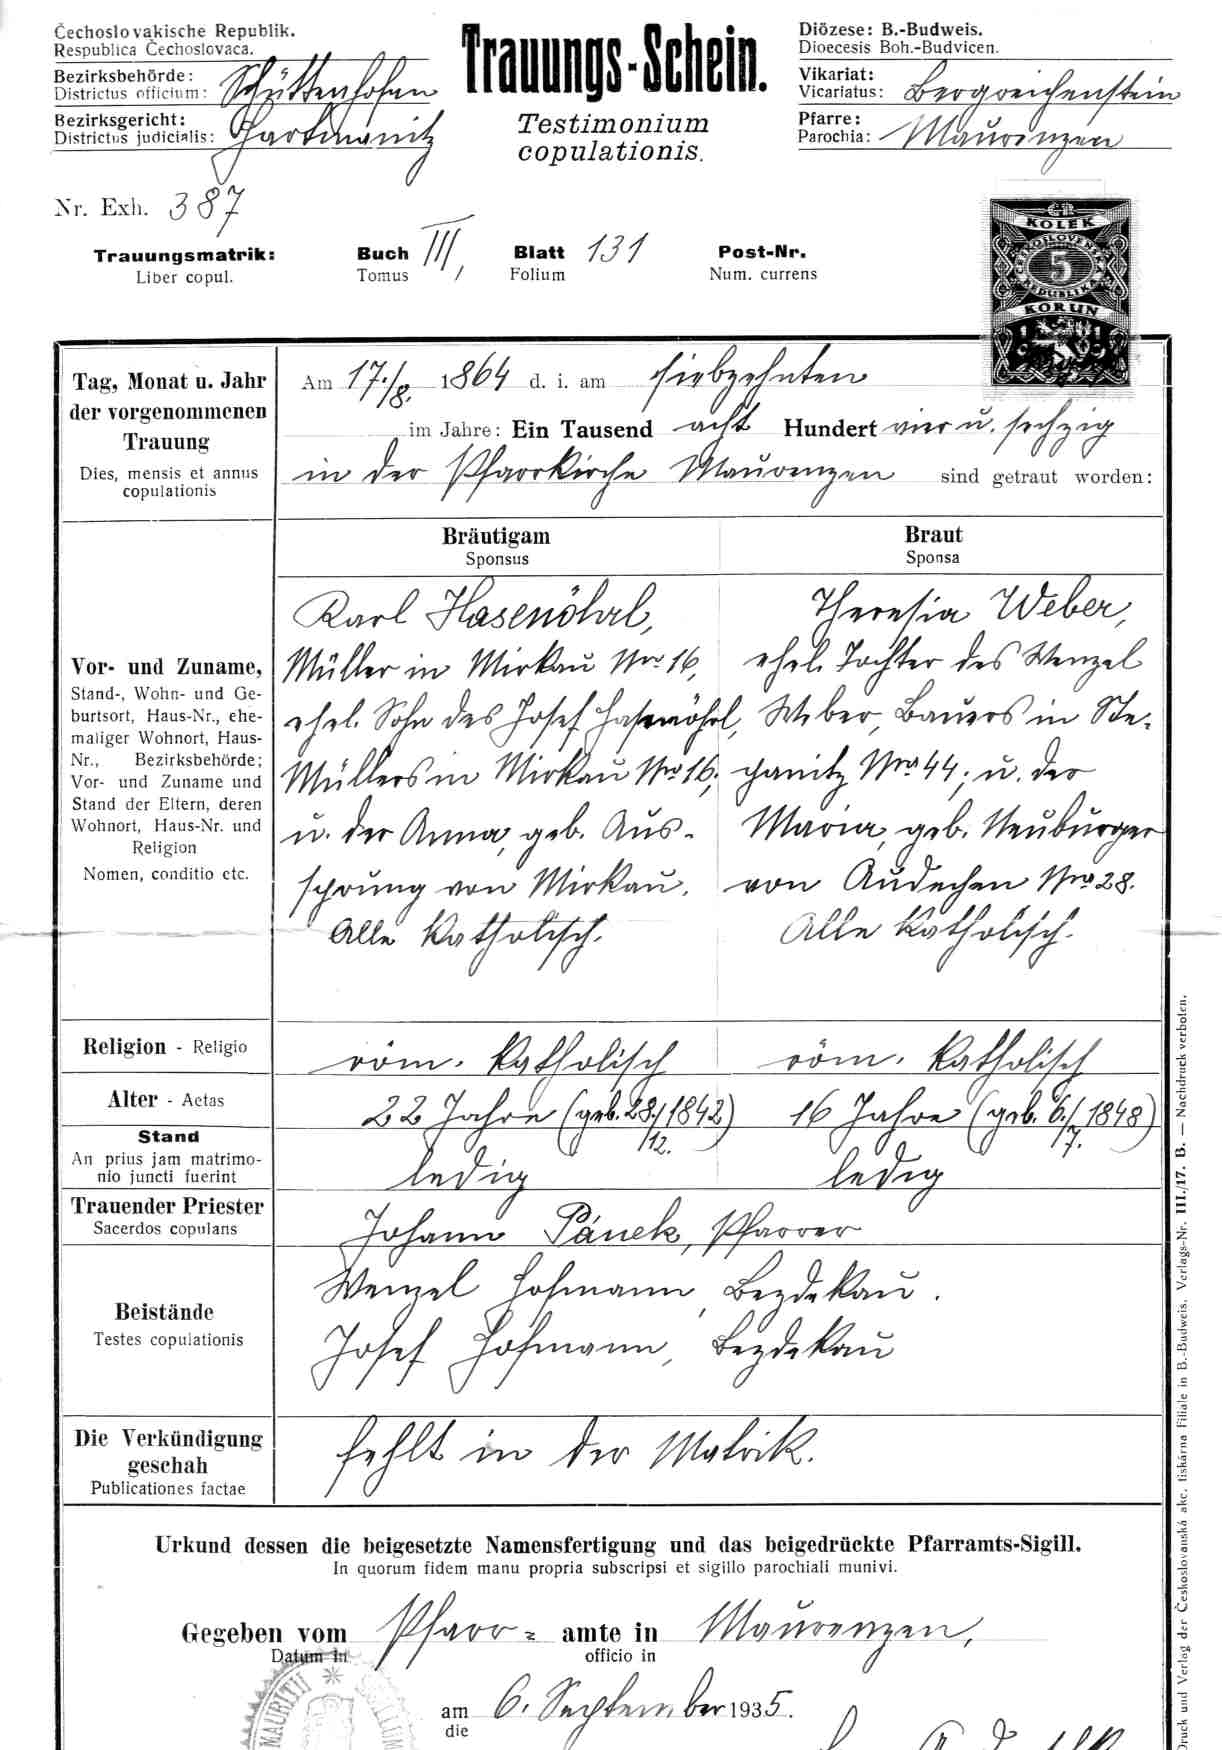 Čechoslovakische Republik.
Respublica Čechoslovaca.
Bezirksbehörde: Schüttenhofen
Districtus officium:
Bezirksgericht: Hartmanitz
Districtus judicialis:
Trauungs-Schein.
Testimonium
copulationis.
Diözese: B.-Budweis.
Dioecesis Boh.-Budvicen.
Vikariat: Bergreichenstein
Vicariatus:
Pfarre: Maurenzen
Parochia:
Nr. Exh. 387
Trauungsmatrik: Buch III, Blatt 131 Post-Nr.
Liber copul. Tomus Folium Num. currens
KOLEK
ČESKOSLOVENSKÁ
5
REPUBLIKA
KORUN
Tag, Monat u. Jahr
der vorgenommenen
Trauung
Dies, mensis et annus
copulationis
Am 17./8. 1864 d. i. am siebzehnten
im Jahre: Ein Tausend acht Hundert vier u. sechzig
in der Pfarrkirche Maurenzen sind getraut worden:
Bräutigam
Sponsus
Braut
Sponsa
Vor- und Zuname,
Stand-, Wohn- und Ge-
burtsort, Haus-Nr., ehe-
maliger Wohnort, Haus-
Nr., Bezirksbehörde;
Vor- und Zuname und
Stand der Eltern, deren
Wohnort, Haus-Nr. und
Religion
Nomen, conditio etc.
Karl Hasenöhrl,
Müller in Mirkau Nro 16,
ehel. Sohn des Josef Hasenöhrl,
Müllers in Mirkau Nro 16;
u. der Anna, geb. Aus-
sprung von Mirkau.
Alle katholisch.
Theresia Weber,
ehel. Tochter des Wenzel
Weber, Bauers in Ste-
panitz Nro 44; u. der
Maria, geb. Neuburger
von Audechen Nro 28.
Alle katholisch.
Religion - Religio
röm. katholisch
röm. katholisch
Alter - Aetas
22 Jahre (geb. 28./12. 1842)
16 Jahre (geb. 6./7. 1848)
Stand
An prius jam matrimo-
nio juncti fuerint
ledig
ledig
Trauender Priester
Sacerdos copulans
Johann Pánek, Pfarrer
Beistände
Testes copulationis
Wenzel Hofmann, Bezdekau.
Josef Hofmann, Bezdekau
Die Verkündigung
geschah
Publicationes factae
fehlt in der Matrik.
Urkund dessen die beigesetzte Namensfertigung und das beigedrückte Pfarramts-Sigill.
In quorum fidem manu propria subscripsi et sigillo parochiali munivi.
Gegeben vom Pfarr= amte in Maurenzen,
Datum in officio in
am 6. September 1935.
die
MAURITII
SIGILLUM
Druck und Verlag der Českoslovanská akc. tiskárna Filiale in B.-Budweis. Verlags-Nr. III./17. B. — Nachdruck verboten.